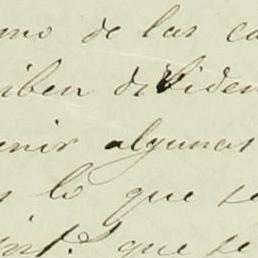 mo de las ca
iben dividen
enir algunas
s lo que se
int.s que se